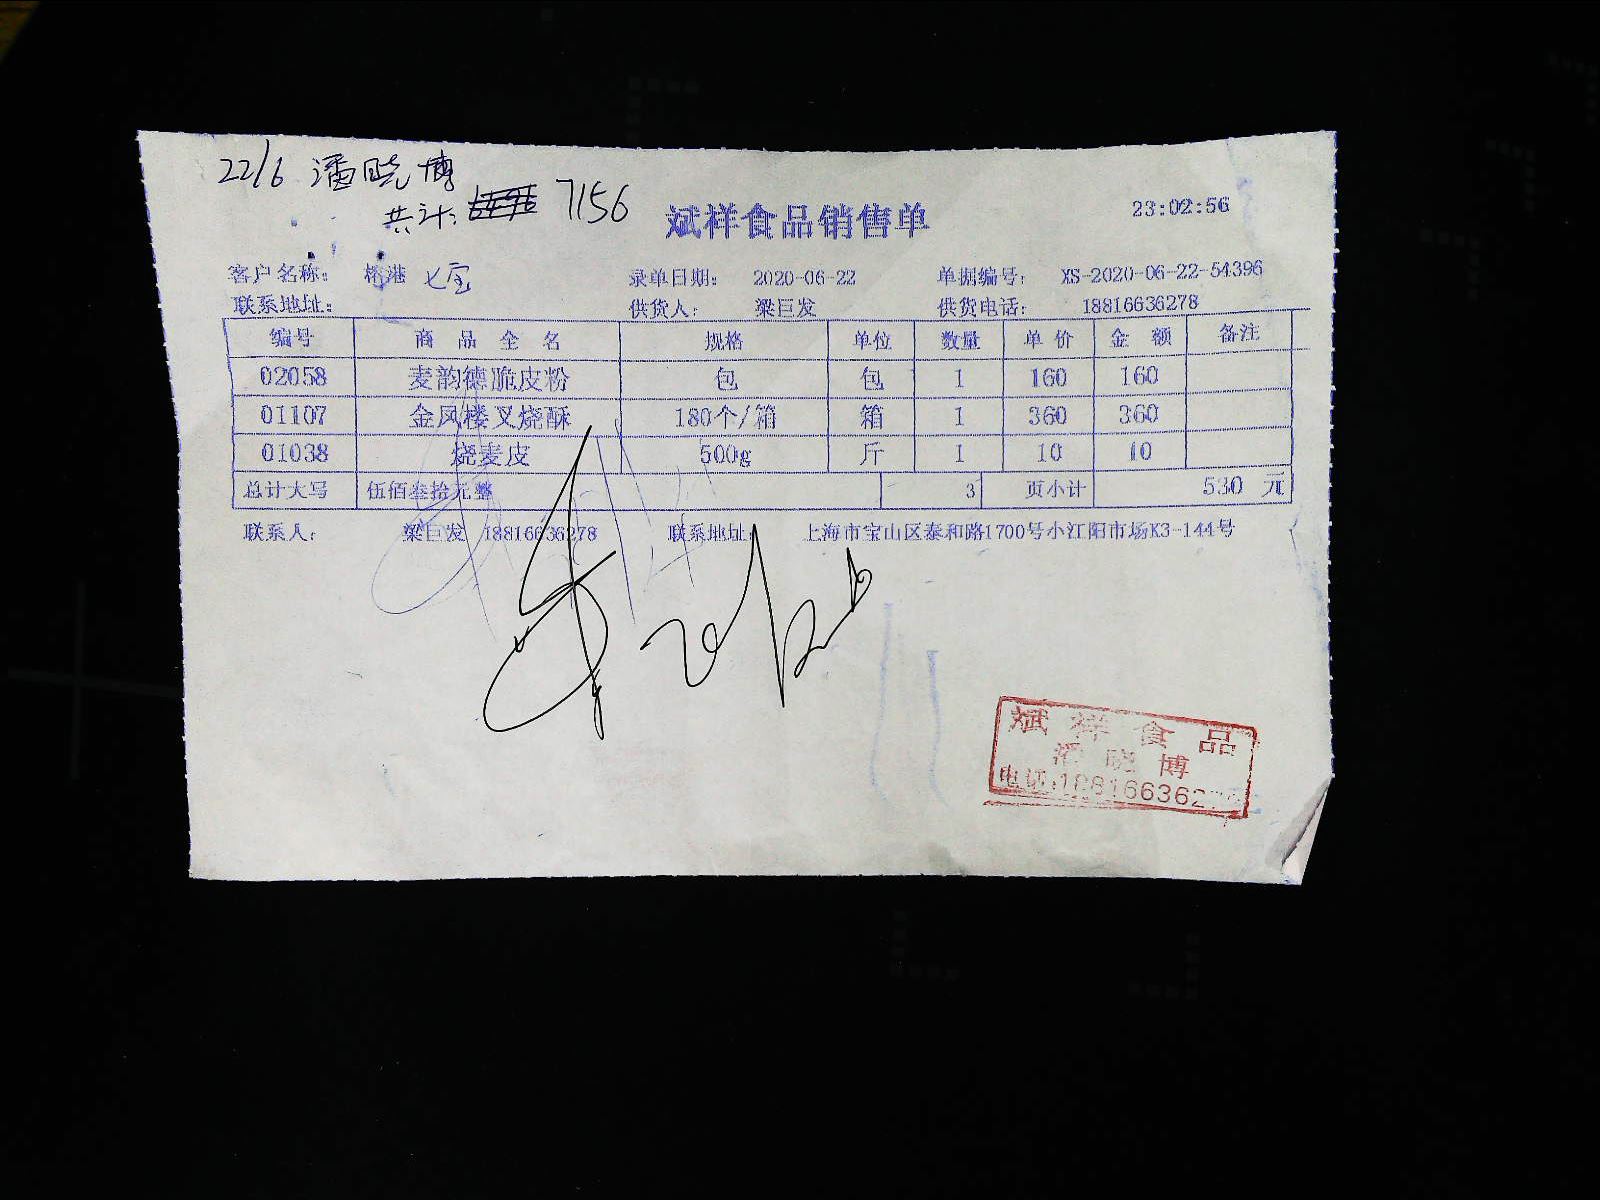 22/6 潘晓博
共计: 7156
斌祥食品销售单
23:02:56
客户名称: 港 七宝 录单日期: 2020-06-22 单据编号: XS-2020-06-22-54396
联系地址: 供货人: 梁巨发 供货电话: 18816636278
编号 商品全名 规格 单位 数量 单价 金额 备注
02058 麦韵德脆皮粉 包 包 1 160 160
01107 金凤楼叉烧酥 180个/箱 箱 1 360 360
01038 烧麦皮 500g 斤 1 10 10
总计大写 伍佰叁拾元整 3 页小计 530 元
联系人: 梁巨发 18816636278 联系地址: 上海市宝山区泰和路1700号小江阳市场K3-144号
斌祥食品
潘晓博
电话:188166362